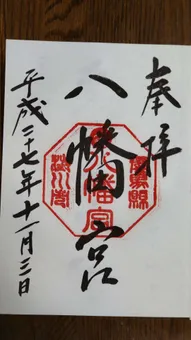 奉拝
八幡宮
平成二十七年十一月三日